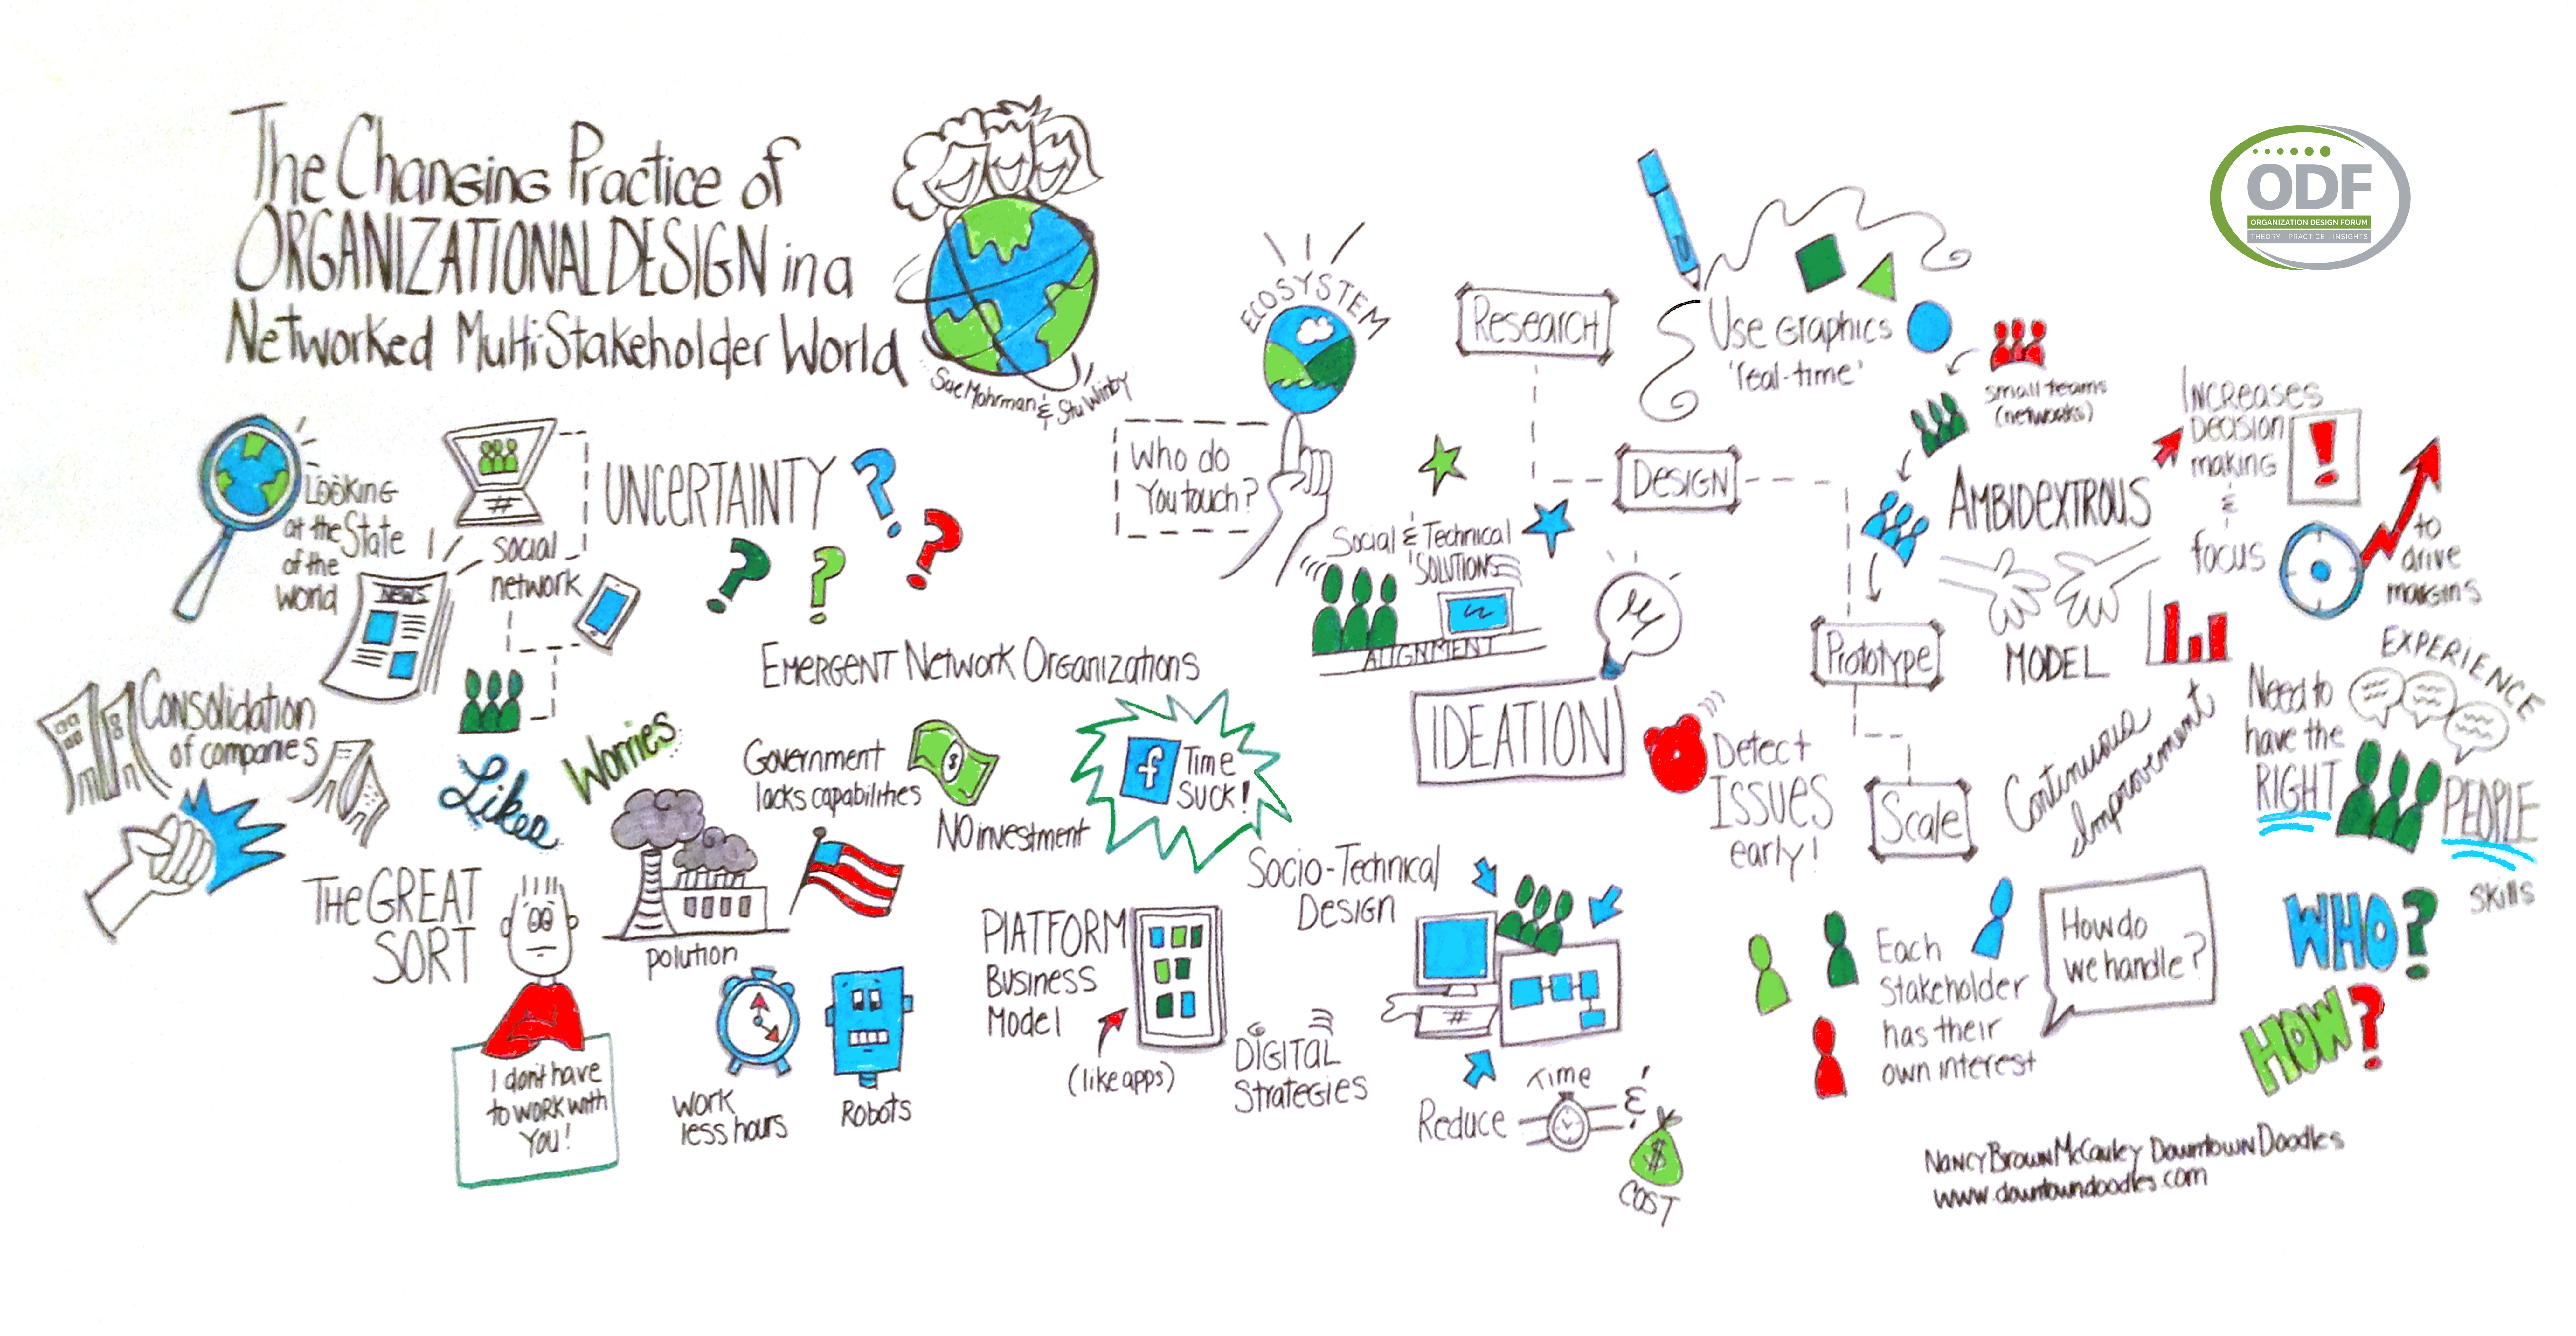 The Changing Practice of
ORGANIZATIONAL DESIGN in a
Networked MultiStakeholder World
Sue Mohrman & Stu Winby
ODF
ORGANIZATION DESIGN FORUM
THEORY - PRACTICE - INSIGHTS
Looking
at the State
of the
world
NEWS
#
social
network
UNCERTAINTY
? ? ? ? ?
Consolidation
of companies
Likes
Worries
EMERGENT Network Organizations
Government
lacks capabilities
$
NO investment
f Time
SUCK!
THE GREAT
SORT
I don't have
to work with
YOU!
polution
Work
less hours
Robots
PLATFORM
BUSINESS
Model
(like apps)
DIGITAL
Strategies
Socio-Technical
Design
#
Reduce
Time
&
$
COST
ECOSYSTEM
Who do
You touch?
Social & Technical
SOLUTIONS
ALIGNMENT
IDEATION
Detect
ISSUES
early!
Research
Design
Prototype
Scale
Use Graphics
'real-time'
small teams
(networks)
AMBIDEXTROUS
MODEL
INCREASES
Decision
making
!
&
focus
to
drive
margins
Continuous
Improvement
EXPERIENCE
Need to
have the
RIGHT
PEOPLE
skills
Each
Stakeholder
has their
own interest
How do
we handle?
WHO?
HOW?
Nancy Brown McCauley Downtown Doodles
www.downtowndoodles.com